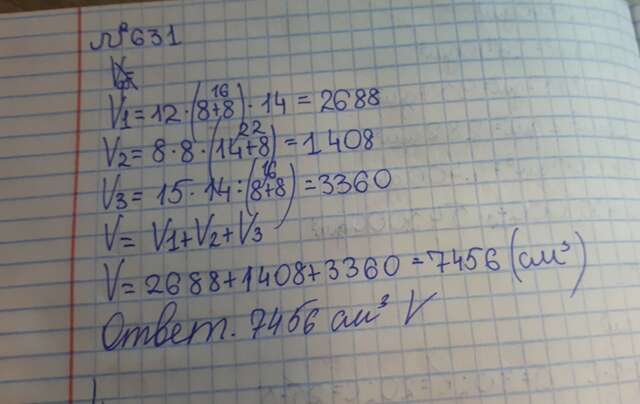 №631
V=
16
V₁ = 12 · (8+8) · 14 = 2688
22
V₂ = 8 · 8 · (14+8) = 1408
16
V₃ = 15 · 14 · (8+8) = 3360
V = V₁ + V₂ + V₃
V = 2688 + 1408 + 3360 = 7456 (см³)
Ответ. 7456 см³ V